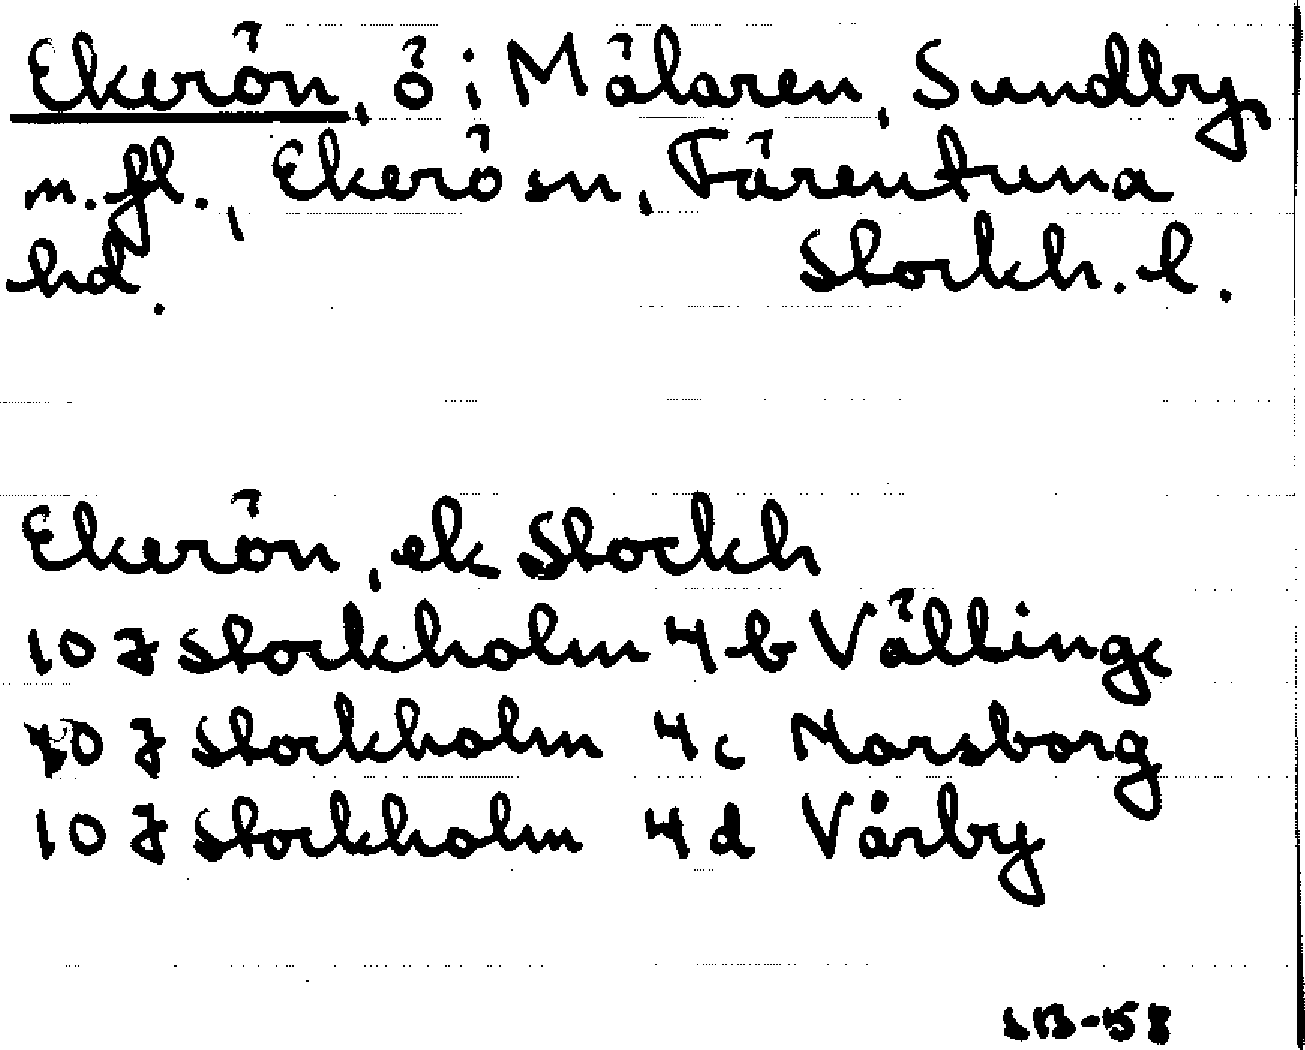 Ekerön, ö i Mälaren, Sundby
m.fl., Ekerö sn, Färentuna
hd. Stockh. l.
Ekerön, ek Stockh
10 J Stockholm 4 b Vällinge
10 J Stockholm 4 c Norsborg
10 J Stockholm 4 d Vårby